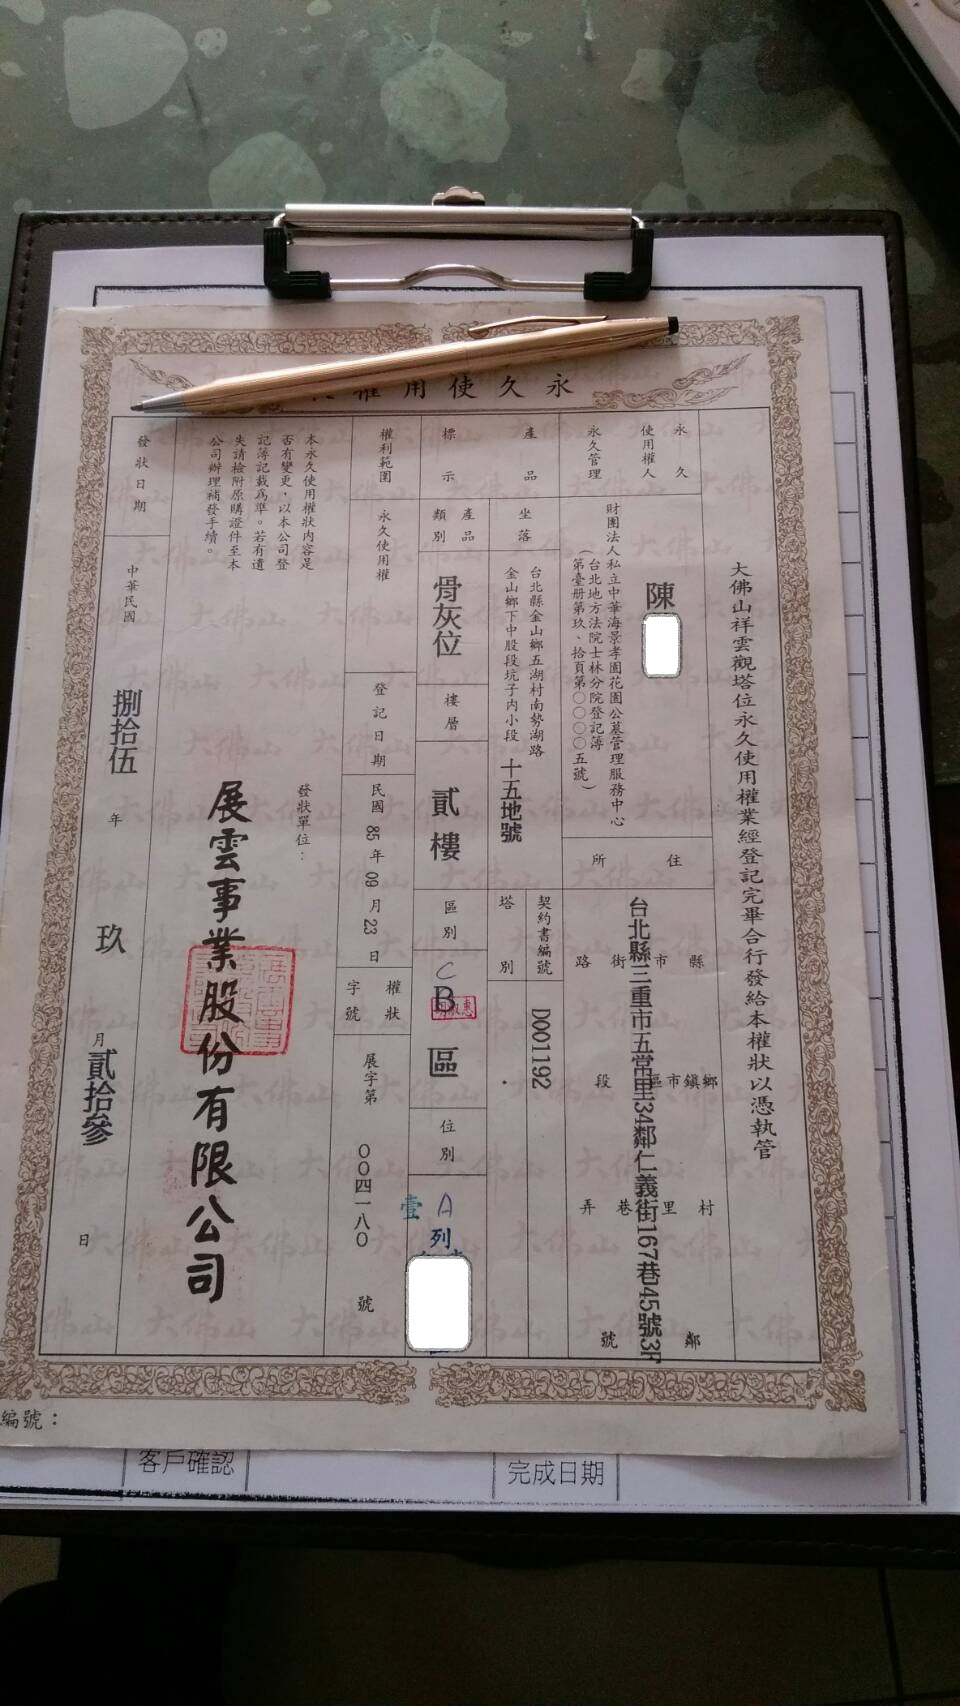 永久使用權
大佛山祥雲觀塔位永久使用權業經登記完畢合行發給本權狀以憑執管
永久
使用權人
陳
永久管理
財團法人私立中華海景孝園花園公墓管理服務中心
(台北地方法院士林分院登記簿
第臺册第玖、拾頁第〇〇〇〇五號)
住所
縣市街路
鄉鎮市區段
村里巷弄
鄰號
台北縣三重市五常里34鄰仁義街167巷45號3F
產品
標示
坐落
台北縣金山鄉五湖村南勢湖路
金山鄉下中股段坑子內小段
十五地號
契約書編號
D001192
塔別
產品
類別
骨灰位
樓層
貳樓
區別
C
B區
位別
A
列
壹
權利範圍
永久使用權
登記日期
民國85年09月23日
權狀
字號
展字第
00四一八0
號
本永久使用權狀內容是
否有變更,以本公司登
記簿記載為準。若有遺
失請檢附原購證件至本
公司辦理補發手續。
發狀單位:
展雲事業股份有限公司
發狀日期
中華民國
捌拾伍
年
玖
月
貳拾參
日
編號:
客戶確認
完成日期